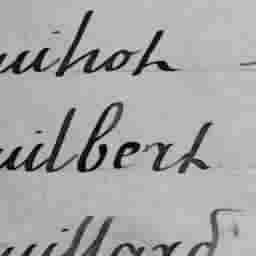 uihot
uilbert
uillard